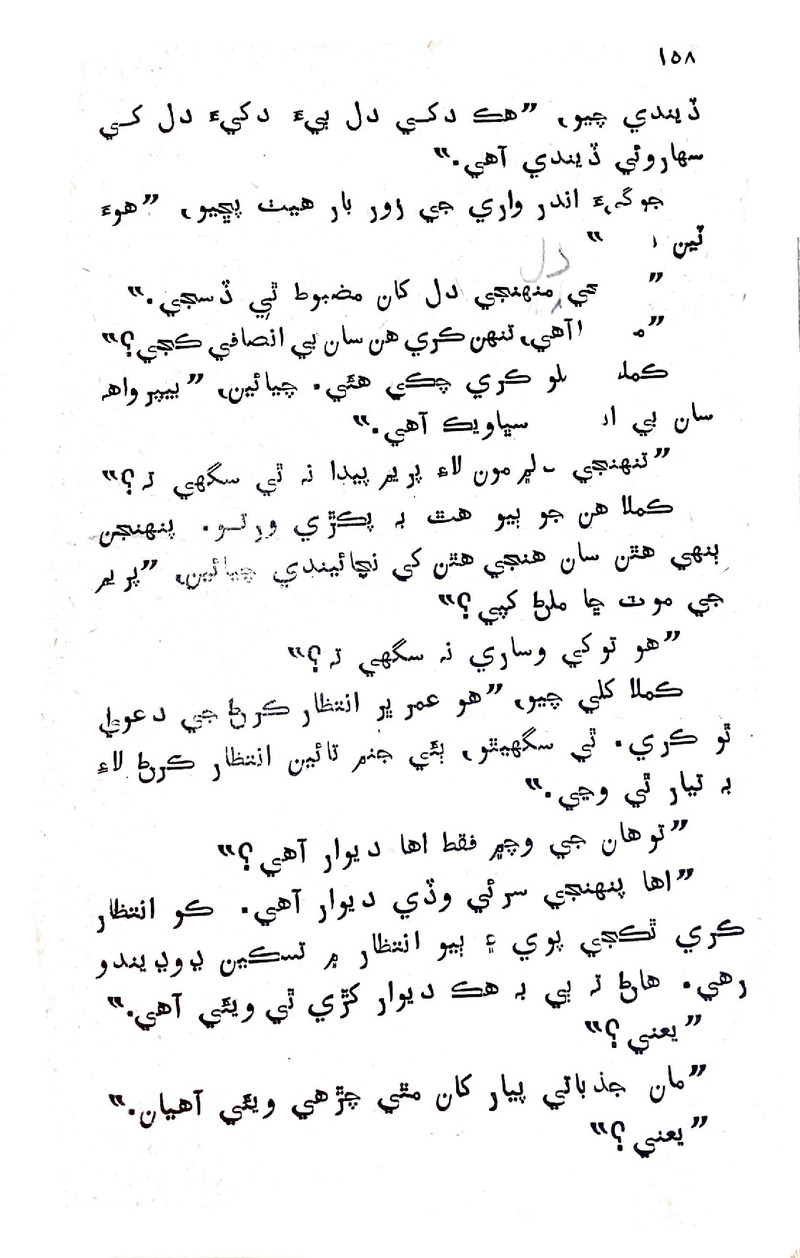 ١٥٨
ڏيندي چيو، ”هڪ دکي دل ٻيءَ دکيءَ دل کي
سهاروئي ڏيندي آهي.“
جوڳيءَ اندر واري جي زور بار هيٺ پڇيو، ”هوءَ
ٽين “
” جي منهنجي دل کان مضبوط ٿي ڏسجي.“
” آهي، تنهن ڪري هن سان بي انصافي ڪجي؟“
ڪري چڪي هئي. چيائين، ”بيپرواهہ
سان بي سڀاويڪ آهي.“
”تنهنجي مون لاءِ پريم پيدا نہ ٿي سگهي تہ؟“
ڪملا هن جو ٻيو هٿ بہ پڪڙي ورتو. پنهنجن
ٻنهي هٿن سان هنجي هٿن کي نچائيندي چيائين، ”پريم
جي موت ڇا ملڻ کپي؟“
”هو توکي وساري نہ سگهي تہ؟“
ڪملا کلي چيو، ”هو عمر ڀر انتظار ڪرڻ جي دعويٰ
ٿو ڪري. ٿي سگهيٿو، ٻئي جنم تائين انتظار ڪرڻ لاءِ
بہ تيار ٿي وڃي.“
”توهان جي وچ۾ فقط اها ديوار آهي؟“
”اها پنهنجي سرئي وڏي ديوار آهي. ڪو انتظار
ڪري ٿڪجي پوي ۽ ٻيو انتظار ۾ تسڪين ڍوڍيندو
رهي. هاڻ تہ ٻي بہ هڪ ديوار کڙي ٿي ويئي آهي.“
”يعني؟“
”مان جذباتي پيار کان مٿي چڙهي ويئي آهيان.“
”يعني؟“